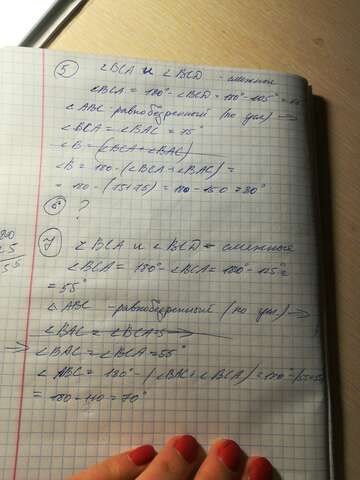 5) ∠BCA и ∠BCD - смежные
∠BCA = 180° - ∠BCD = 180° - 105° = 75
∠ABC - равнобедренный (по усл) →
∠BCA = ∠BAC = 75°
∠B = (∠BCA + ∠BAC)
∠B = 180 - (∠BCA + ∠BAC) =
= 180 - (75+75) = 180 - 150 = 30°
6) ?
7) ∠BCA и ∠BCD = смежные
∠BCA = 180° - ∠BCD = 180° - 125° =
= 55°
△ABC - равнобедренный (по усл) →
∠BAC = ∠BCA =
⇒ ∠BAC = ∠BCA = 55°
∠ABC = 180° - (∠BAC + ∠BCA) = 180° - (55+55)
= 180 - 110 = 70°